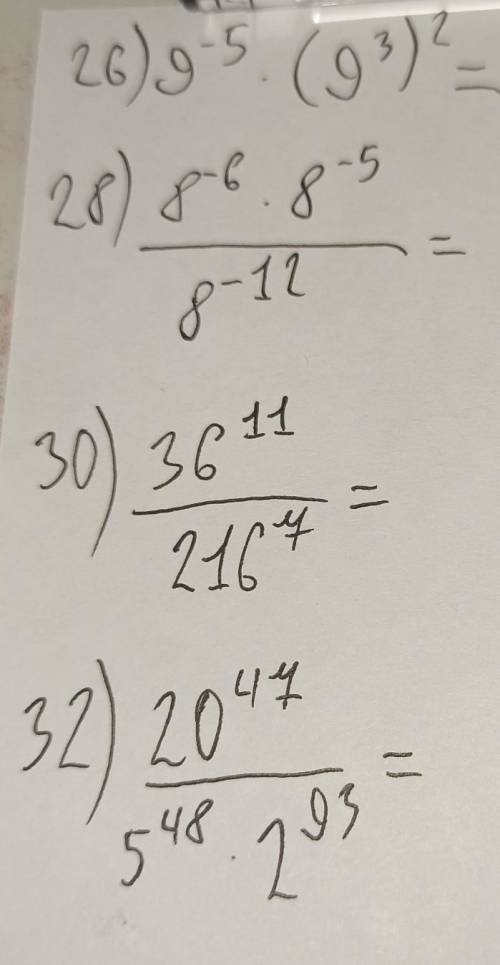 26) 9⁻⁵ · (9³)² =
28) 8⁻⁶ · 8⁻⁵ / 8⁻¹² =
30) 36¹¹ / 216⁷ =
32) 20⁴⁷ / 5⁴⁸ · 2⁹³ =